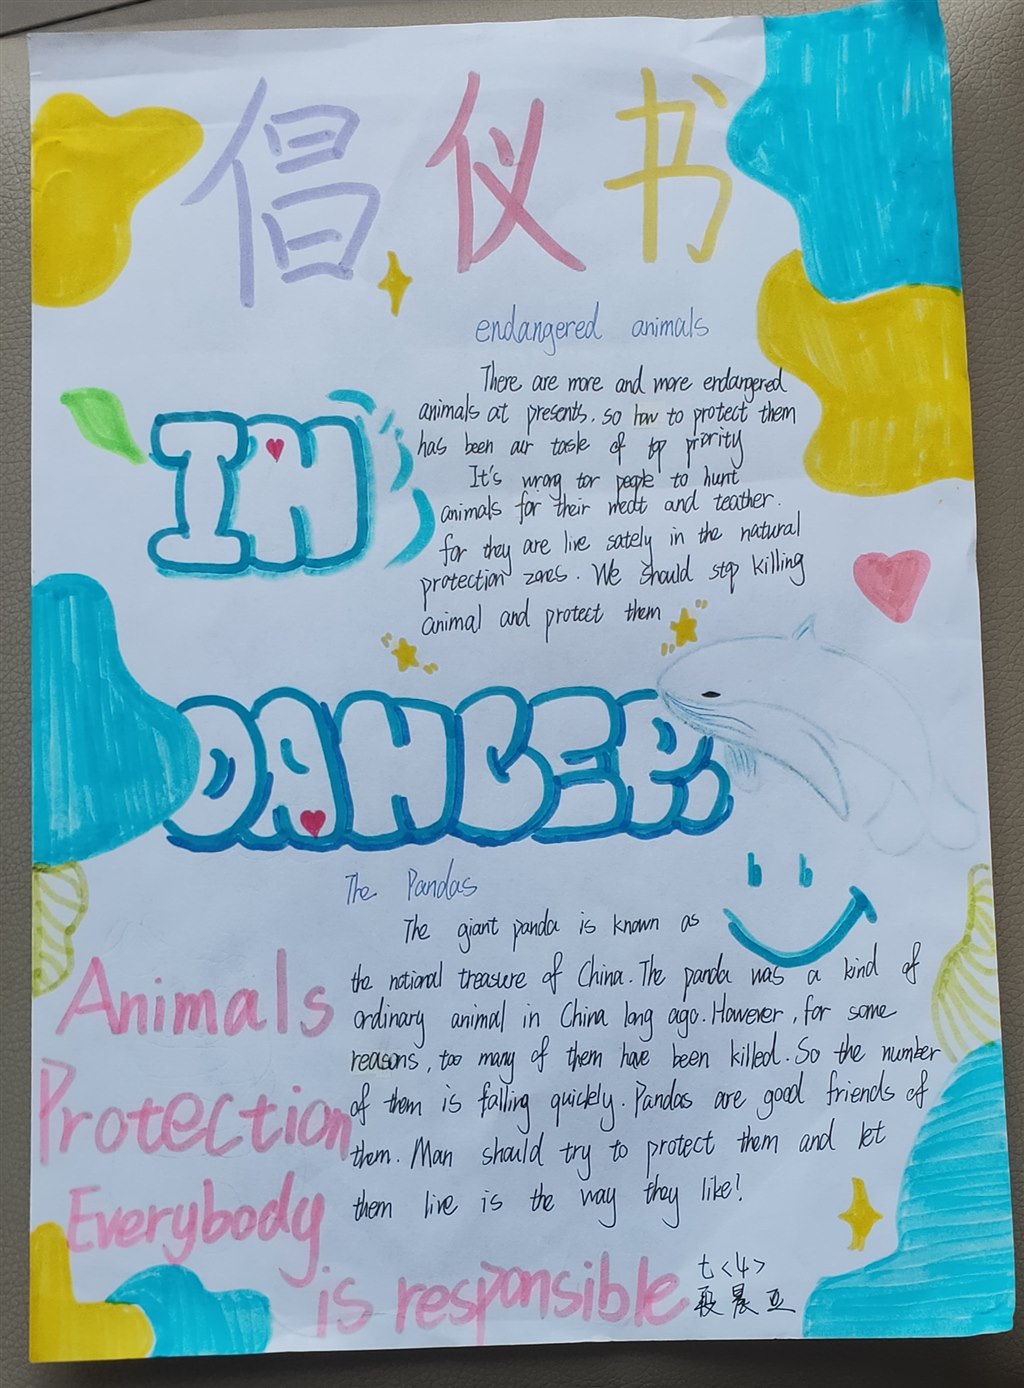 倡仪书
endangered animals
There are more and more endangered
animals at presents. so how to protect them
has been our taste of top priority
It's wrong tor people to hunt
animals for their meat and teather.
for they are live sately in the natural
protection zones. We should stop killing
animal and protect them
IN
DANGER
The Pandas
The giant panda is known as
the national treasure of China. The panda was a kind of
ordinary animal in China long ago. However, for some
reasons, too many of them have been killed. So the number
of them is falling quickly. Pandas are good friends of
them. Man should try to protect them and let
them live is the way they like!
Animals
Protection
Everybody
is responsible
七<4>
晨亚